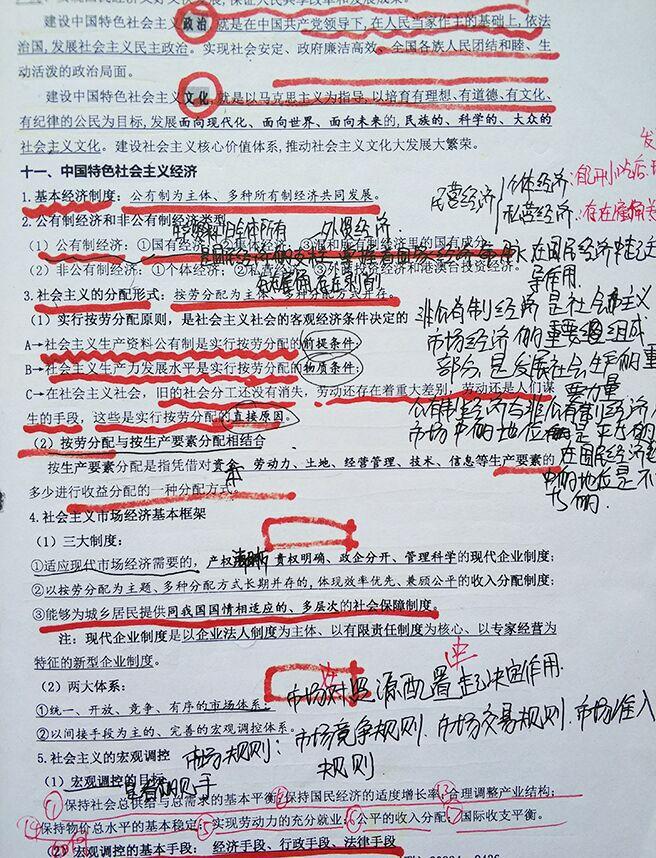 建设中国特色社会主义政治,就是在中国共产党领导下,在人民当家作主的基础上,依法
治国,发展社会主义民主政治。实现社会安定、政府廉洁高效、全国各族人民团结和睦、生
动活泼的政治局面。
建设中国特色社会主义文化,就是以马克思主义为指导,以培育有理想、有道德、有文化、
有纪律的公民为目标,发展面向现代化、面向世界、面向未来的,民族的、科学的、大众的
社会主义文化。建设社会主义核心价值体系,推动社会主义文化大发展大繁荣。
十一、中国特色社会主义经济
1.基本经济制度:公有制为主体、多种所有制经济共同发展。
民营经济 个体经济:
私营经济:存在雇佣
2.公有制经济和非公有制经济类型
外资经济
(1)公有制经济:①国有经济②集体经济③混和所有制经济里的国有成分
在国民经济中
导作用.
(2)非公有制经济:①个体经济
外商投资经济和港澳台投资经济。
3.社会主义的分配形式:按劳分配为主体、多种分配方式并存。
(1)实行按劳分配原则,是社会主义社会的客观经济条件决定的
非公有制经济是社会主义
市场经济的重要组成
部分,是发展社会生产的重
要力量
A→社会主义生产资料公有制是实行按劳分配的前提条件;
B→社会主义生产力发展水平是实行按劳分配的物质条件;
C→在社会主义社会,旧的社会分工还没有消失,劳动还存在着重大差别,劳动还是人们谋
生的手段,这些是实行按劳分配的直接原因。
公有制经济与非公有制经济
市场中的地位是平等的
在国民经济
中的地位是不
(2)按劳分配与按生产要素分配相结合
按生产要素分配是指凭借对资本、劳动力、土地、经营管理、技术、信息等生产要素的
多少进行收益分配的一种分配方式
4.社会主义市场经济基本框架
(1)三大制度:
①适应现代市场经济需要的,产权清晰、责权明确、政企分开、管理科学的现代企业制度;
②以按劳分配为主题、多种分配方式长期并存的,体现效率优先、兼顾公平的收入分配制度;
③能够为城乡居民提供同我国国情相适应的、多层次的社会保障制度。
注:现代企业制度是以企业法人制度为主体、以有限责任制度为核心、以专家经营为
特征的新型企业制度。
(2)两大体系:
市场对资源配置起决定作用.
①统一、开放、竞争、有序的市场体系;
②以间接手段为主的、完善的宏观调控体系。
市场规则:市场竞争规则.市场交易规则.市场准入
规则
5.社会主义的宏观调控
(1)宏观调控的目标
①保持社会总供给与总需求的基本平衡②保持国民经济的适度增长率③合理调整产业结构;
④保持物价总水平的基本稳定;⑤实现劳动力的充分就业;⑥公平的收入分配;⑦国际收支平衡。
(2)宏观调控的基本手段:经济手段、行政手段、法律手段